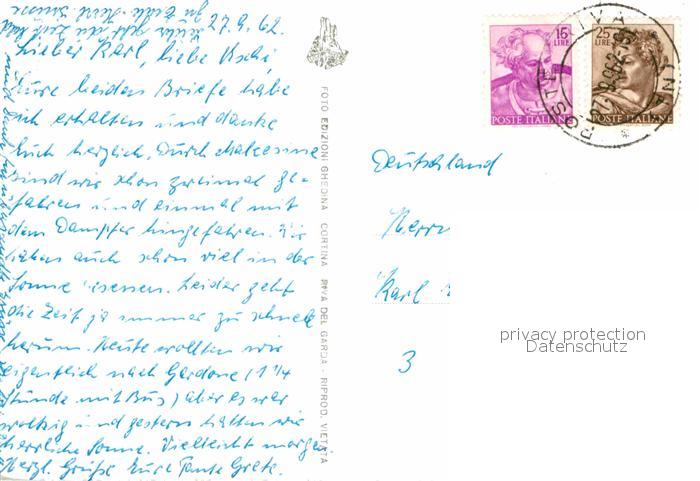 27.9.62.
Lieber Karl, liebe Uschi
Eure beiden Briefe habe
ich erhalten und danke
Euch herzlich. Durch Malcesine
sind wir schon zweimal ge-
fahren und einmal mit
dem Dampfer hingefahren. Wir
haben auch schon viel in der
Sonne gesessen. Leider geht
die Zeit ja immer zu schnell
herum. Heute wollten wir
eigentlich nach Gardone (1 1/4
Stunde mit Bus) aber es war
wolkig und gestern hatten wir
herrliche Sonne. Vielleicht morgen.
Herzl. Grüße Eure Tante Grete.
FOTO EDIZIONI GHEDINA CORTINA RIVA DEL GARDA - RIPROD. VIETATA
15
LIRE
POSTE ITALIANE
25
LIRE
POSTE ITALIANE
RIVA
POSTE
Deutschland
Herrn
Karl
3
privacy protection
Datenschutz